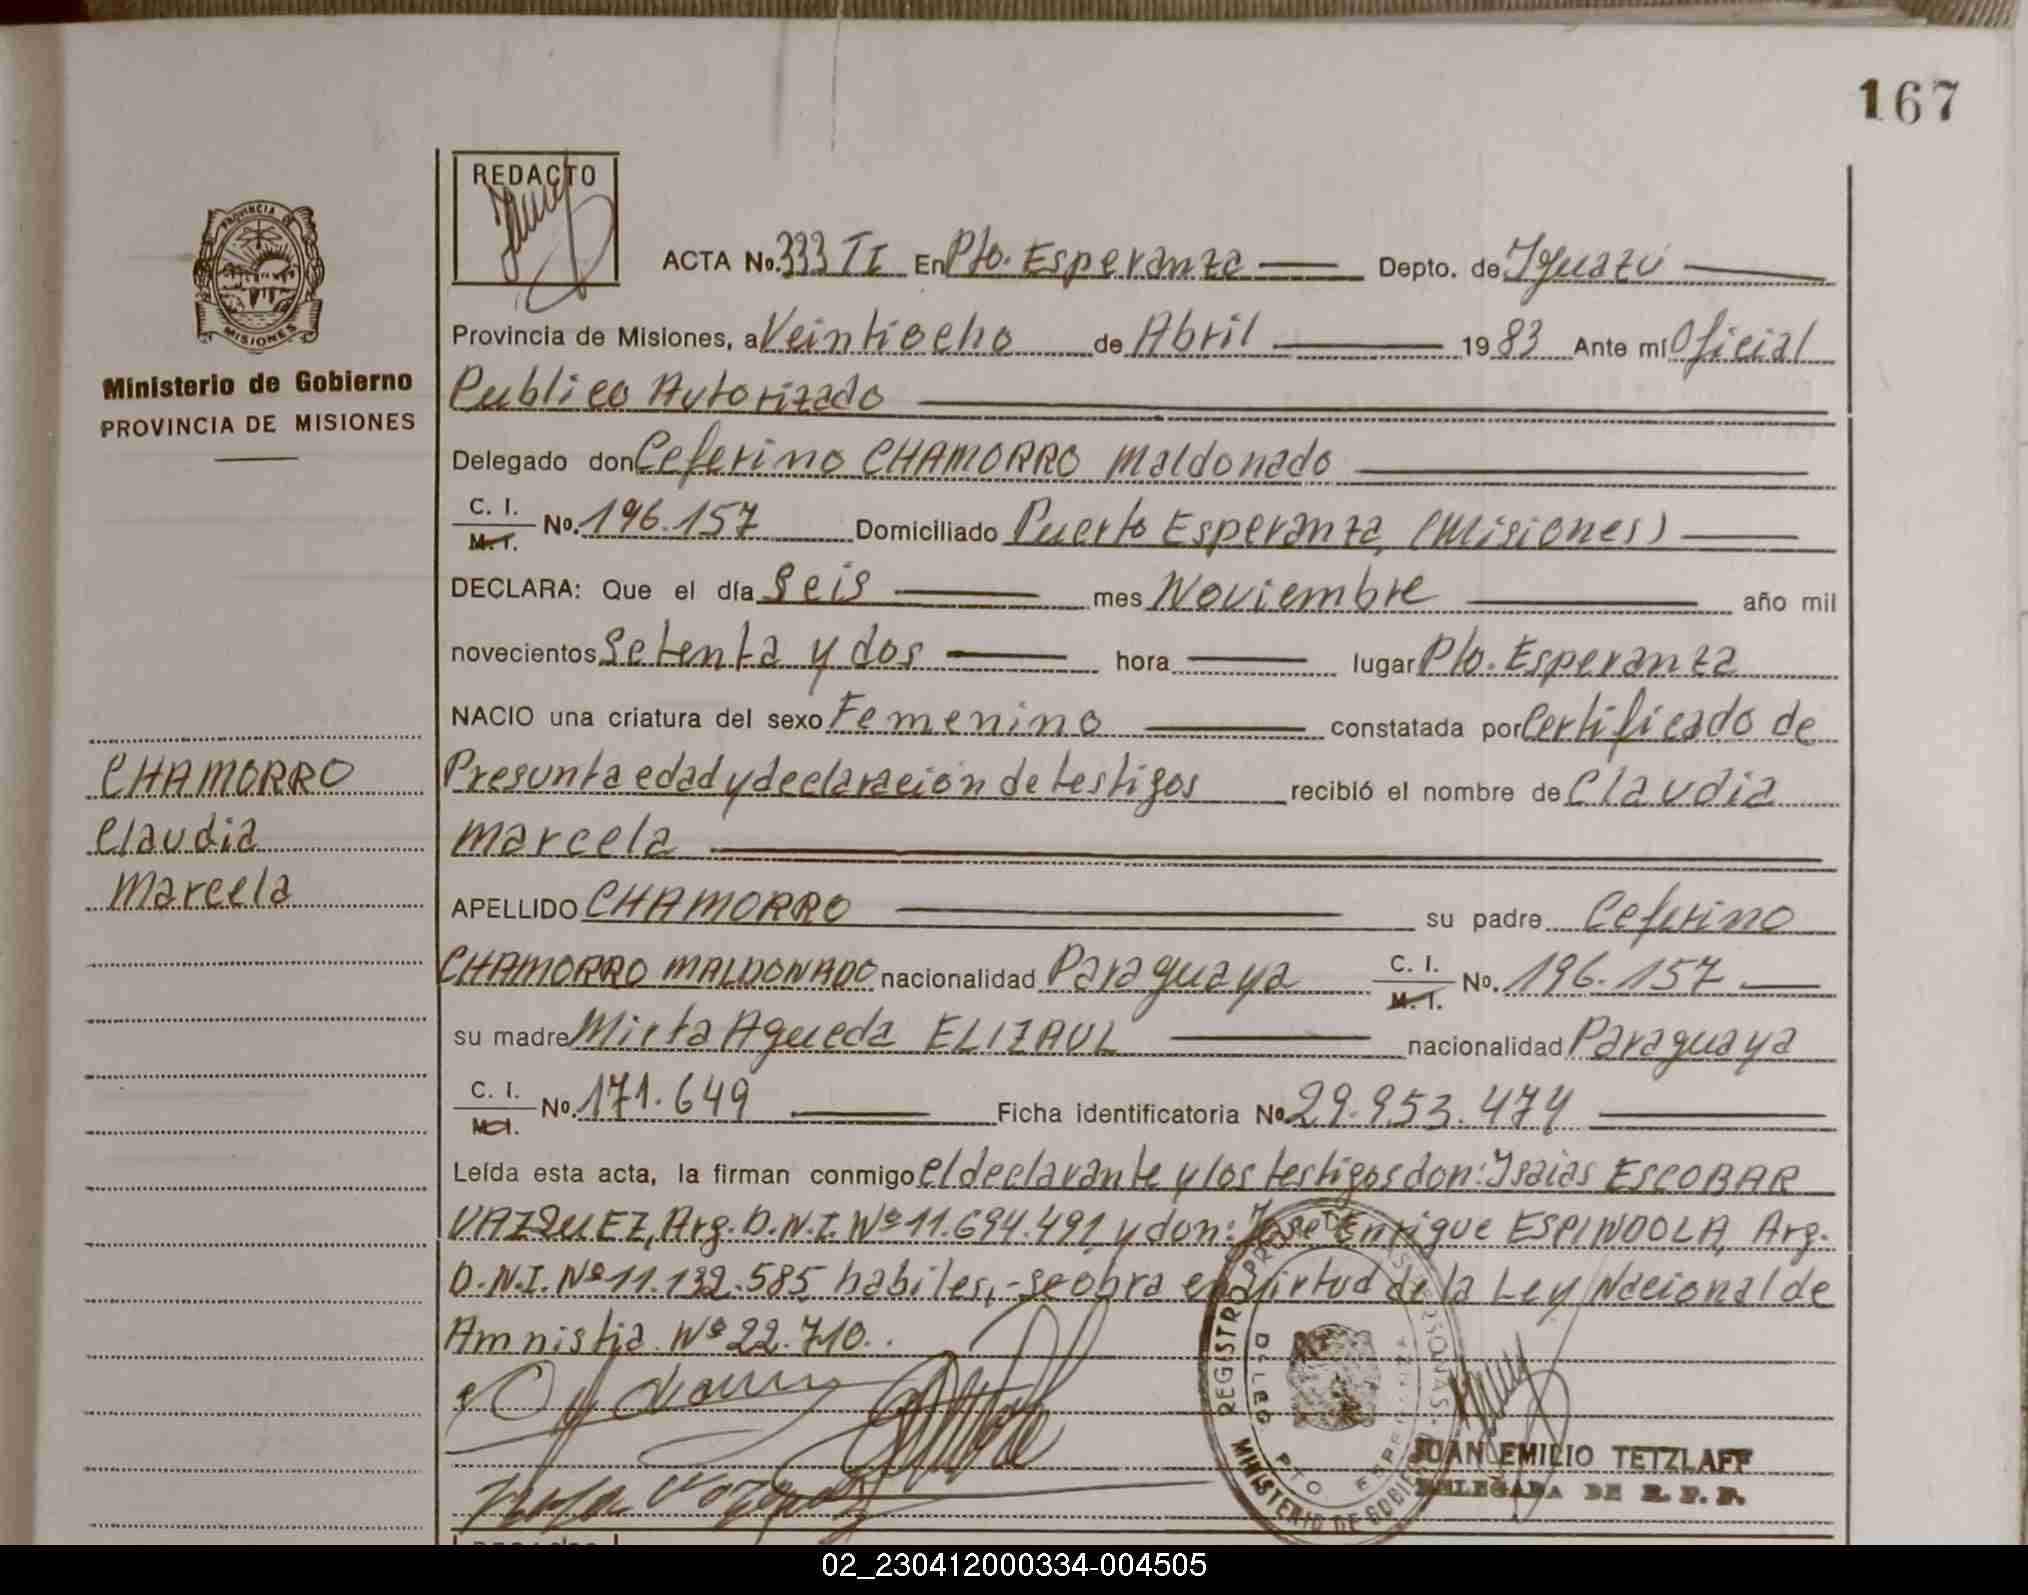 167
REDACTO
PROVINCIA DE
MISIONES
Ministerio de Gobierno
PROVINCIA DE MISIONES
CHAMORRO
Claudia
Marcela
ACTA No. 333 TI En Pto. Esperanza Depto. de Iguazú
Provincia de Misiones, a Veintiocho de Abril 1983 Ante mí Oficial
Publico Autorizado
Delegado don Ceferino CHAMORRO Maldonado
C. I.
M. I. No. 196.157 Domiciliado Puerto Esperanza, (Misiones)
DECLARA: Que el día Seis mes Noviembre año mil
novecientos Setenta y dos hora lugar Pto. Esperanza
NACIO una criatura del sexo Femenino constatada por Certificado de
Presunta edad y declaración de testigos recibió el nombre de Claudia
Marcela
APELLIDO CHAMORRO su padre Ceferino
CHAMORRO MALDONADO nacionalidad Paraguaya C. I. M. I. No. 196.157
su madre Mirta Agueda ELIZAUL nacionalidad Paraguaya
C. I. M. I. No. 171.649 Ficha identificatoria No 29.953.474
Leída esta acta, la firman conmigo el declarante y los testigos don: Isaias ESCOBAR
VAZQUEZ, Arg. D.N.I. Nº 11.694.491, y don: Jose Enrique ESPINDOLA, Arg.
D.N.I. Nº 11.132.585, habiles,- se obra en virtud de la Ley Nacional de
Amnistia Nº 22.710..
REGISTRO PROV. DE PERSONAS
MINISTERIO DE GOBIERNO
DELEG. PTO ESPERANZA
JUAN EMILIO TETZLAFF
DELEGADA DE R. P. P.
02_230412000334-004505